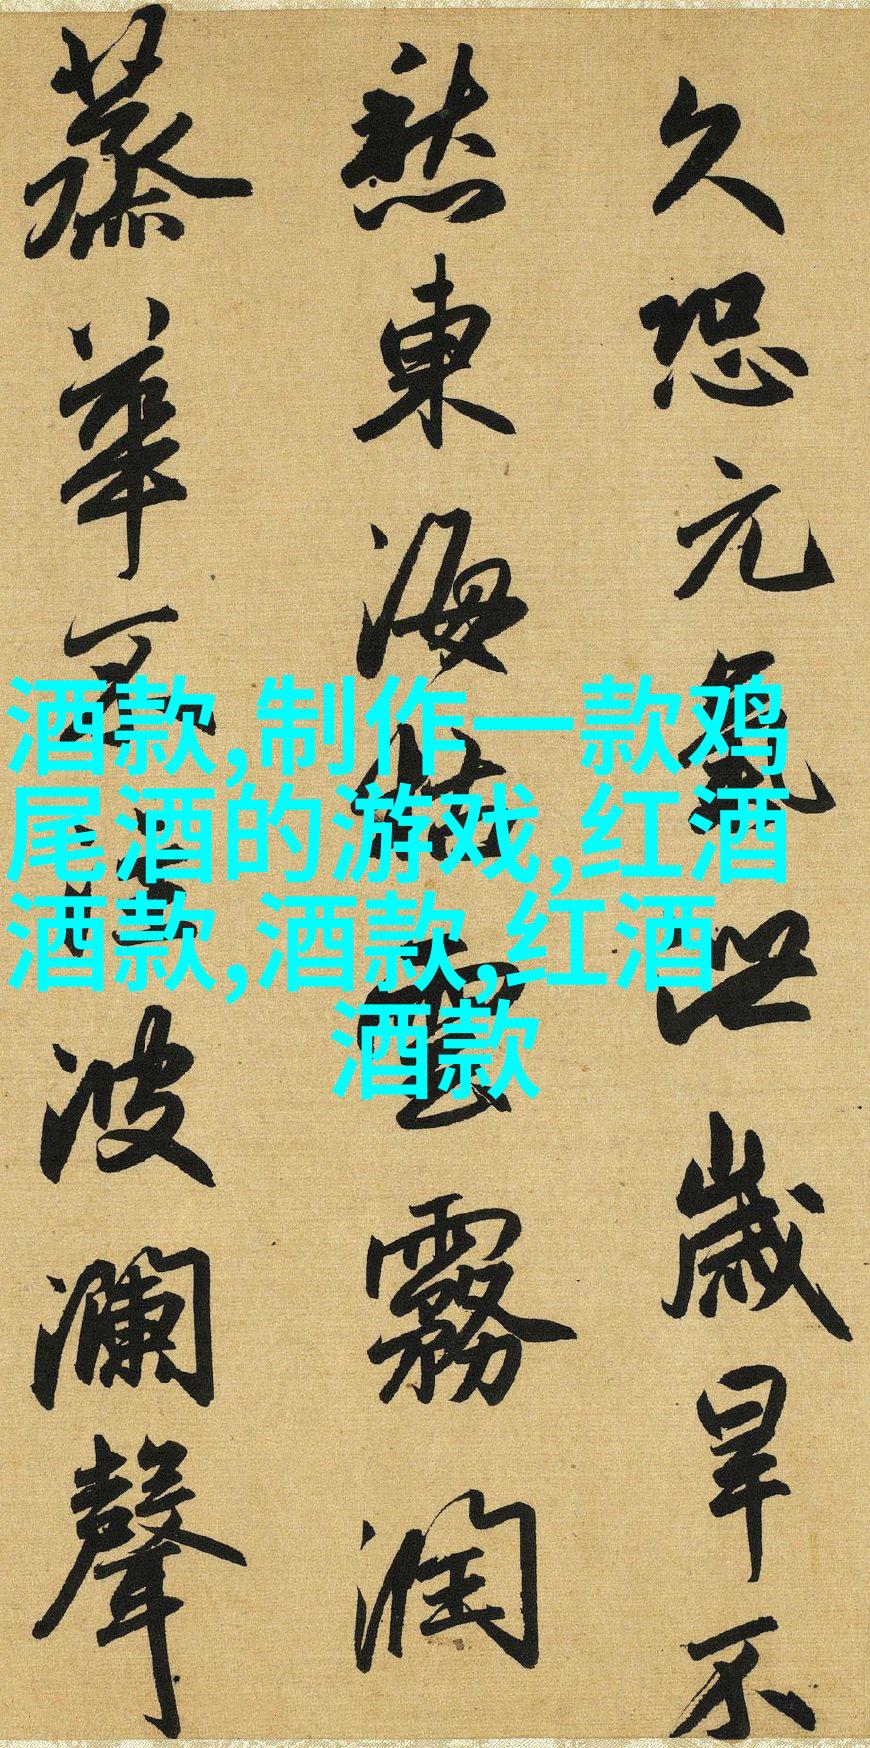 久恐元氣泄歲旱不
愁東海枯雲霧潤
蒸華不注波瀾聲
酒款,制作一款鸡
尾酒的游戏,红酒
酒款,酒款,红酒
酒款